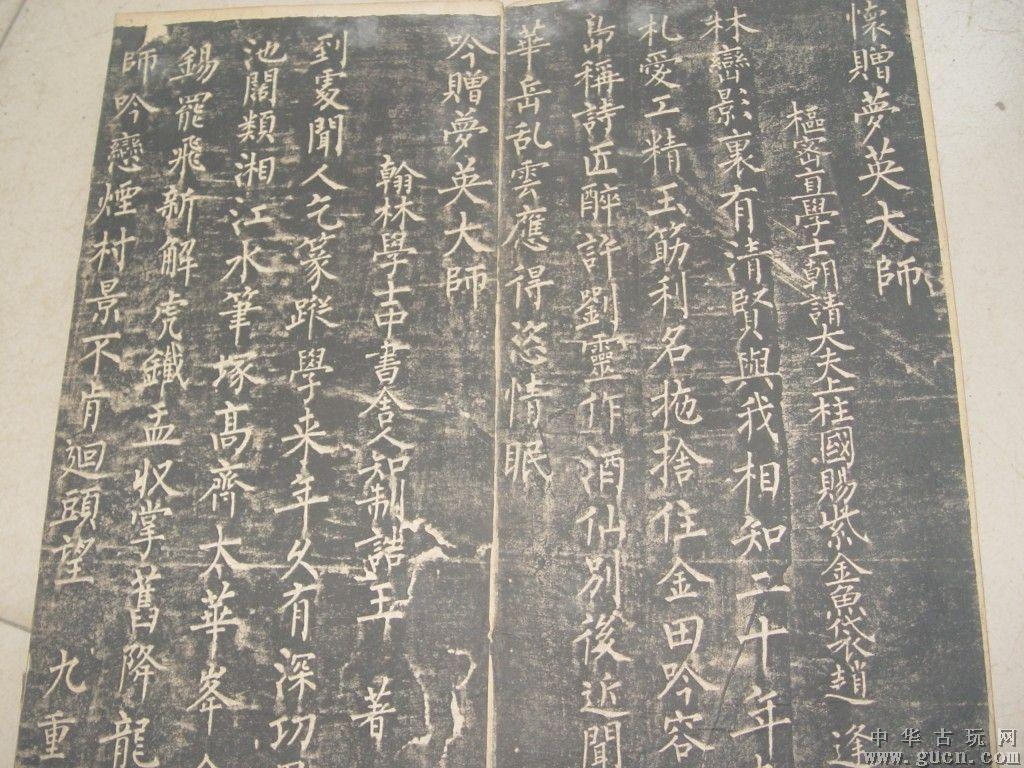 懷贈夢英大師
樞密直學士朝請大夫上柱國賜紫金魚袋趙逢
林巒影裏有清賢與我相知二十年
札愛工精玉筯利名拖捨住金田吟容
島稱詩匠醉許劉靈作酒仙別後近聞
華岳乱雲應得恣情眠
吟贈夢英大師
翰林學士中書舍人知制誥王著
到處聞人乞篆蹤學来年久有深功
池闊類湘江水筆塚髙齊太華峯
錫罷飛新解虎鐵盂収掌舊降龍
師吟戀煙村景不肯迴頭望九重
中华古玩网
www.gucn.com